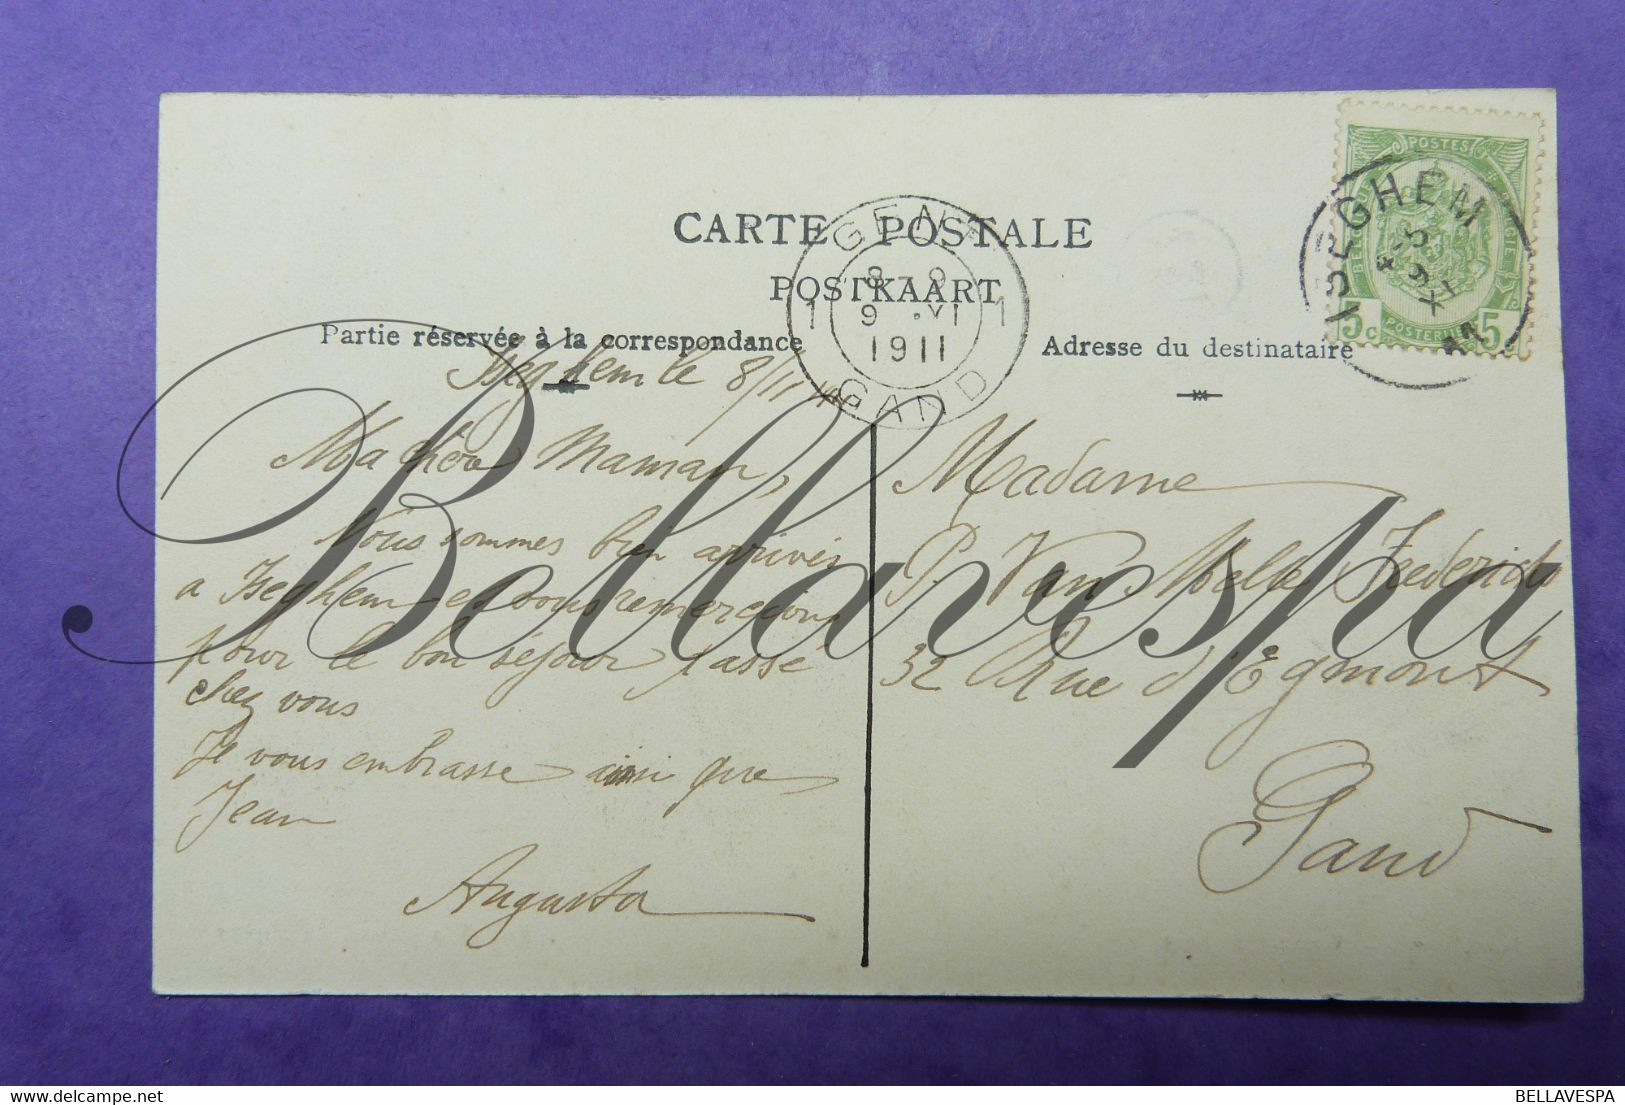 CARTE POSTALE
POSTKAART
Partie réservée à la correspondance
Adresse du destinataire
ISEGHEM
4-5
9 XI
11
POSTES
BELGIQUE
5 c
POSTERIJEN
5 c
GENT
8-9
1 9 XI 1
1911
GAND
Iseghem le 8/11
Ma chère Maman,
Nous sommes bien arrivés
a Iseghem et vous remercions
pour le bon séjour passé
chez vous
Je vous embrasse ainsi que
Jean
Augusta
Madame
P. Van Melle Frederick
32 Rue d'Egmont
Gand
Bellavespa
BELLAVESPA